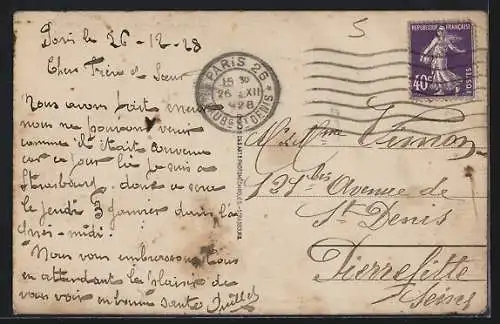 Paris le 26-12-28
Cher Frère et Sœur
Nous avons fait erreur
nous ne pouvons venir
comme il était convenu
car ce jour là je suis a
Strasbourg. donc a sera
le jeudi 3 Janvier dans l'a
près-midi.
Nous vous embrassons tous
en attendant le plaisir de
vous voir en bonne santé
5
PARIS 25
15 30
26 XII
28
ST DENIS
RÉPUBLIQUE FRANÇAISE
40c
POSTES
M et Mme Vernon
121 bis Avenue de
St Denis
Pierrefitte
Seine